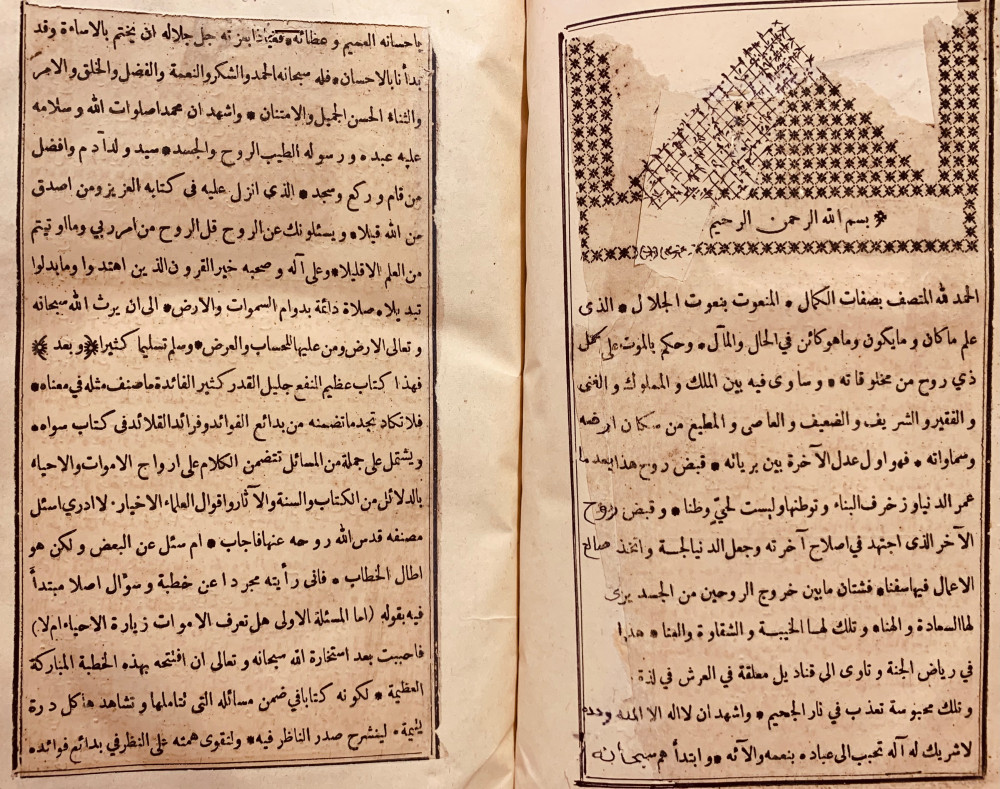 بسم الله الرحمن الرحيم
الحمد لله المتصف بصفات الكمال * المنعوت بنعوت الجلال * الذى
علم ماكان ومايكون وماهو كائن في الحال والمآل * وحكم بالموت على كل
ذي روح من مخلوقاته * وساوى فيه بين الملك والمملوك والغنى
والفقير والشريف والضعيف والعاصى والمطيع من سكان ارضه
وسماواته * فهو اول عدل الآخرة بين برياته * قبض روح هذا بعد ما
عمر الدنيا وزخرف البناء وتوطنها وليست لحيّ وطنا * وقبض روح
الآخر الذى اجتهد في اصلاح آخرته وجعل الدنيا لجة واتخذ صالح
الاعمال فيها سفنا * فشتان مابين خروج الروحين من الجسد يرى
لها السعادة والهناء وتلك لها الخيبة والشقاوة والعنا * هذا
في رياض الجنة وتاوى الى قناديل معلقة في العرش في لذة
وتلك محبوسة تعذب في نار الجحيم * واشهد ان لااله الا الله وحده
لاشريك له آله تحبب الى عباده بنعمه والآئه * وابتدأهم سبحانه
باحسانه العميم وعطائه * جل جلاله ان يختم بالاساءة وقد
بدأنا بالاحسان * فله سبحانه الحمد والشكر والنعمة والفضل والخلق والامر
والثناء الحسن الجميل والامتنان * واشهد ان محمدا صلوات الله وسلامه
عليه عبده ورسوله الطيب الروح والجسد * سيد ولد آدم وافضل
من قام وركع وسجد * الذى انزل عليه فى كتابه العزيز ومن اصدق
من الله قيلا * ويسئلونك عن الروح قل الروح من امر ربي ومااوتيتم
من العلم الا قليلا * وعلى آله وصحبه خير القرون الذين اهتدوا ومابدلوا
تبديلا * صلاة دائمة بدوام السموات والارض * الى ان يرث الله سبحانه
وتعالى الارض ومن عليها للحساب والعرض * وسلم تسليما كثيرا * وبعد *
فهذا كتاب عظيم النفع جليل القدر كثير الفائدة ماصنف مثله في معناه *
فلا تكاد تجد ماتضمنه من بدائع الفوائد وفرائد القلائد فى كتاب سواه *
ويشتمل على جملة من المسائل تتضمن الكلام على ارواح الاموات والاحياء
بالدلائل من الكتاب والسنة والآثار واقوال العلماء الاخيار * لاادري اسئل
مصنفه قدس الله روحه عنها فاجاب * ام سئل عن البعض ولكن هو
اطال الخطاب * فانى رأيته مجردا عن خطبة وسؤال اصلا مبتدأً
فيه بقوله (اما المسئلة الاولى هل تعرف الاموات زيارة الاحياء ام لا)
فاحببت بعد استخارة الله سبحانه وتعالى ان افتتحه بهذه الخطبة المباركة
العظيمة * لكونه كتابا في ضمن مسائله التى تتاملها وتشاهد هاكل درة
يتيمة * لينشرح صدر الناظر فيه * ولتقوى همته على النظر في بدائع فوائده *